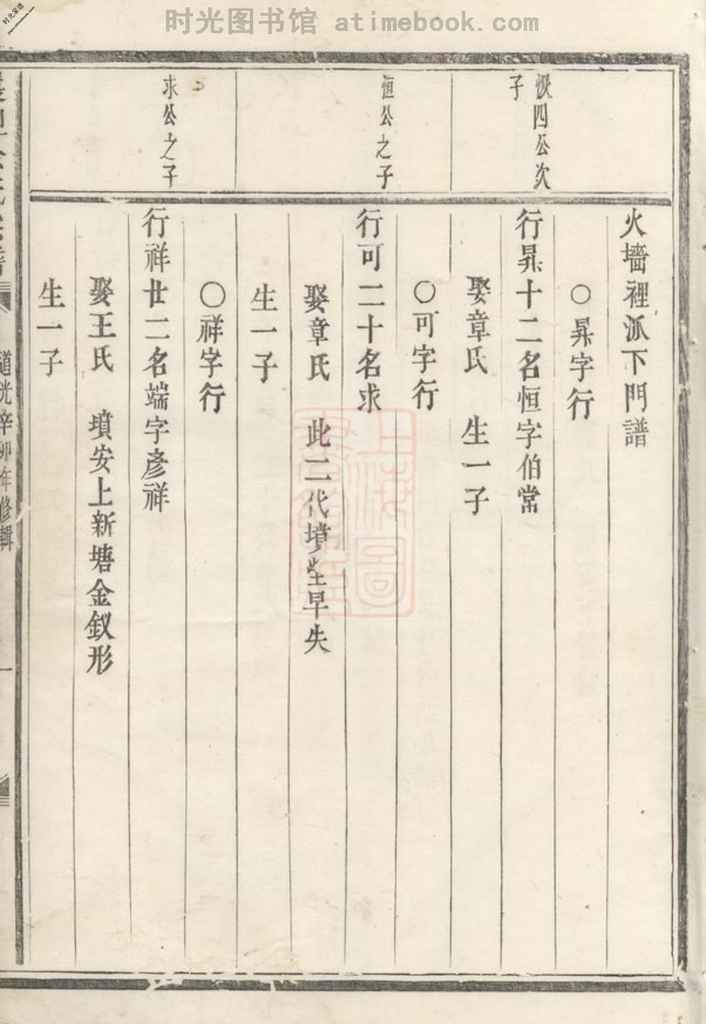 时光图书馆 atimebook.com
火墻裡派下門譜
〇昇字行
四公次
子
行昇十二名恒字伯常
娶章氏 生一子
〇可字行
恒公之子
行可二十名求
娶章氏 此二代墳塋早失
生一子
〇祥字行
求公之子
行祥廿二名端字彥祥
娶王氏 墳安上新塘金釵形
生一子
道光辛卯年修輯
一